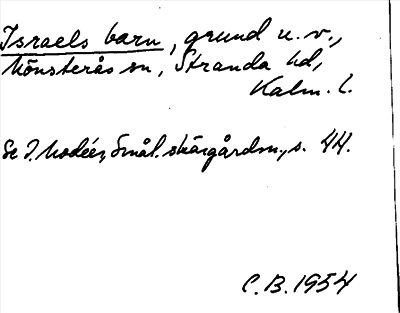 Israels barn, grund u. v.,
Mönsterås sn, Stranda hd,
Kalm. l.
Se I. Modéer, Smål. skärgårdsn., s. 44.
C.B. 1954